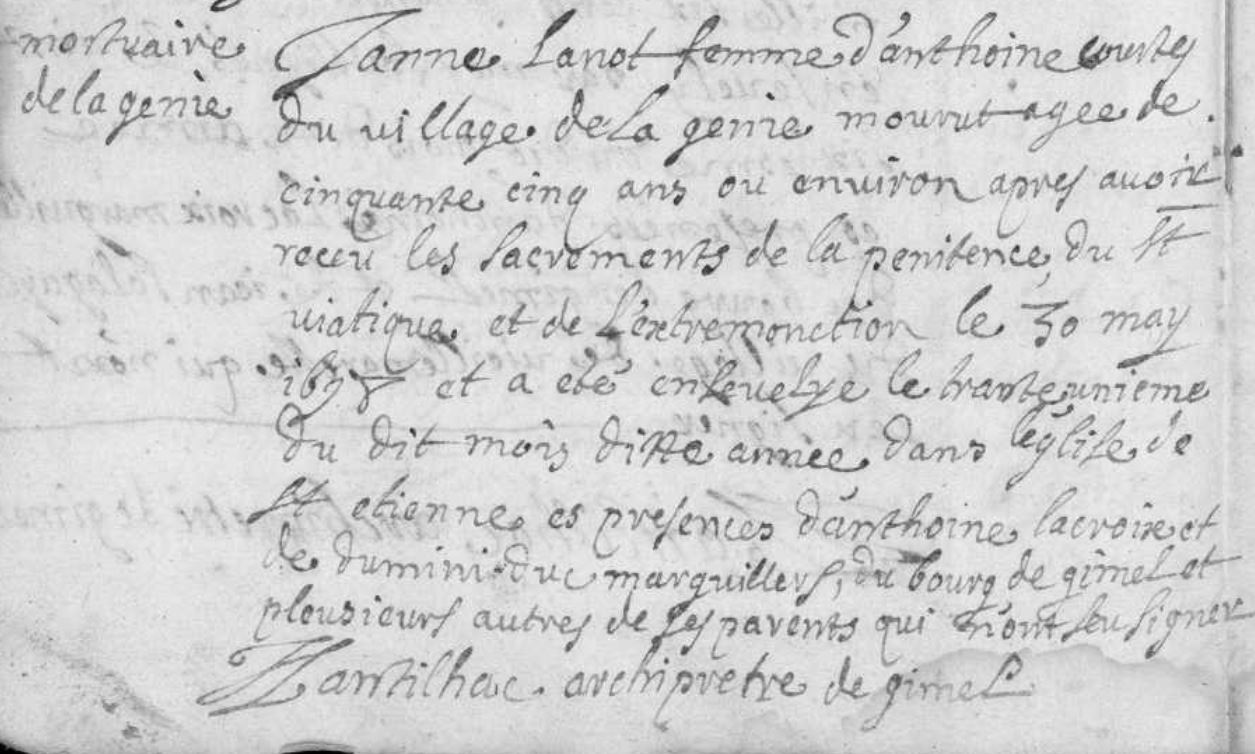 mortuaire
de la genie
Janne Lanot femme d'anthoine courtes
du village de la genie mourut agee de
cinquante cinq ans ou environ apres avoir
receu les sacrements de la penitence, du St
viatique et de L'extremonction le 30 may
et a eté ensevelye le tranteunieme
du dit mois ditte annee dans l'eglise de
St etienne es presences d'anthoine lacroix et
de dumini duc marguillers, du bourg de gimel et
plousieurs autres de ses parents qui n'ont seu signer
archipretre de gimel